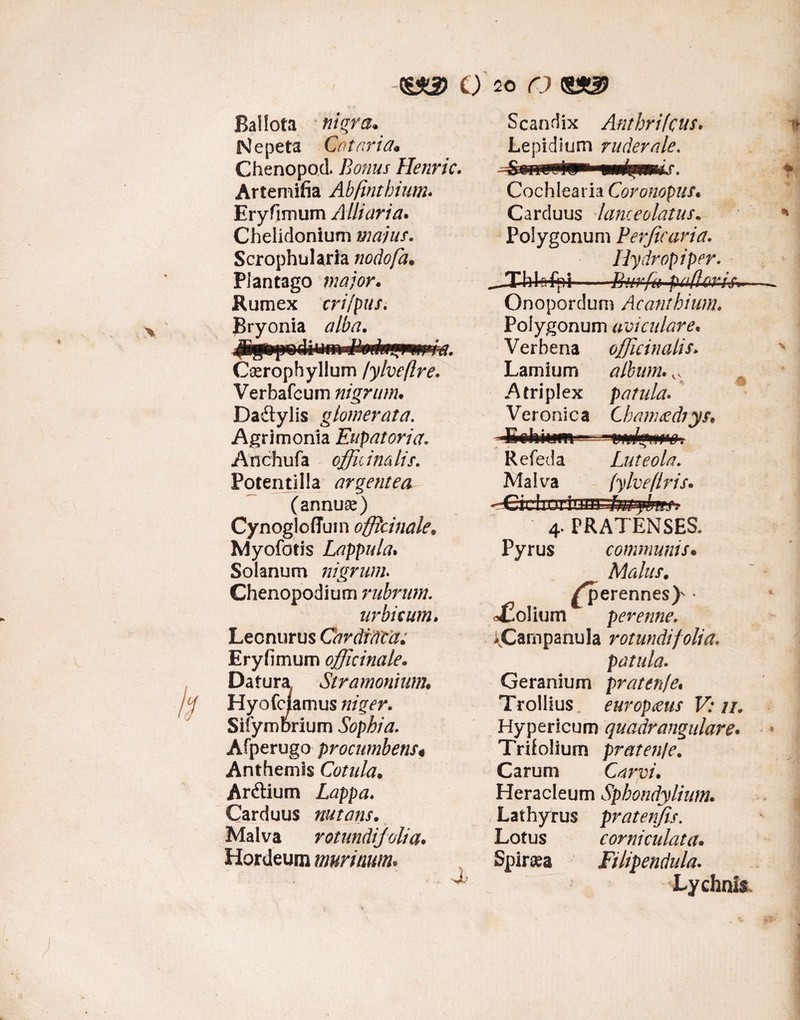 () 20 ()
Ballota nigra.
Nepeta Cataria.
Chenopod. Bonus Henric.
Artemiſia Abſinthium.
Eryſimum Alliaria.
Chelidonium maius.
Scrophularia nodoſa.
Plantago major.
Rumex criſpus.
Bryonia alba.
Ægopodium Podagraria.
Cærophyllum ſylveſtre.
Verbaſcum nigrum.
Dactylis glomerata.
Agrimonia Eupatoria.
Anchuſa officinalis.
Potentilla argentea
(annuæ)
Cynogloſſum officinale.
Myoſotis Lappula.
Solanum nigrum.
Chenopodium rubrum.
urbicum.
Leonurus Cardiaca.
Eryſimum officinale.
Datura Stramonium.
Hyoſcjamus niger.
Siſymbrium Sophia.
Aſperugo procumbens.
Anthemis Cotula.
Arctium Lappa.
Carduus nutans.
Malva rotundifolia.
Hordeum murinum.
Scandix Anthriſcus.
Lepidium ruderale.
Senecio vulgaris.
Cochlearia Coronopus.
Carduus lanceolatus.
Polygonum Perſicaria.
Hydropiper.
Thlaſpi Burſa paſtoris.
Onopordum Acanthium.
Polygonum aviculare.
Verbena officinalis.
Lamium album.
Atriplex patula.
Veronica Chamædrys.
Echium vulgare.
Reſeda Luteola.
Malva ſylveſtris.
Cichorium Intybus.
4. PRATENSES.
Pyrus communis.
Malus.
(perennes)
Lolium perenne.
Campanula rotundifolia.
patula.
Geranium pratenſe.
Trollius europæus V: 11.
Hypericum quadrangulare.
Trifolium pratenſe.
Carum Carvi.
Heracleum Sphondylium.
Lathyrus pratenſis.
Lotus corniculata.
Spiræa Filipendula.
Lychnis